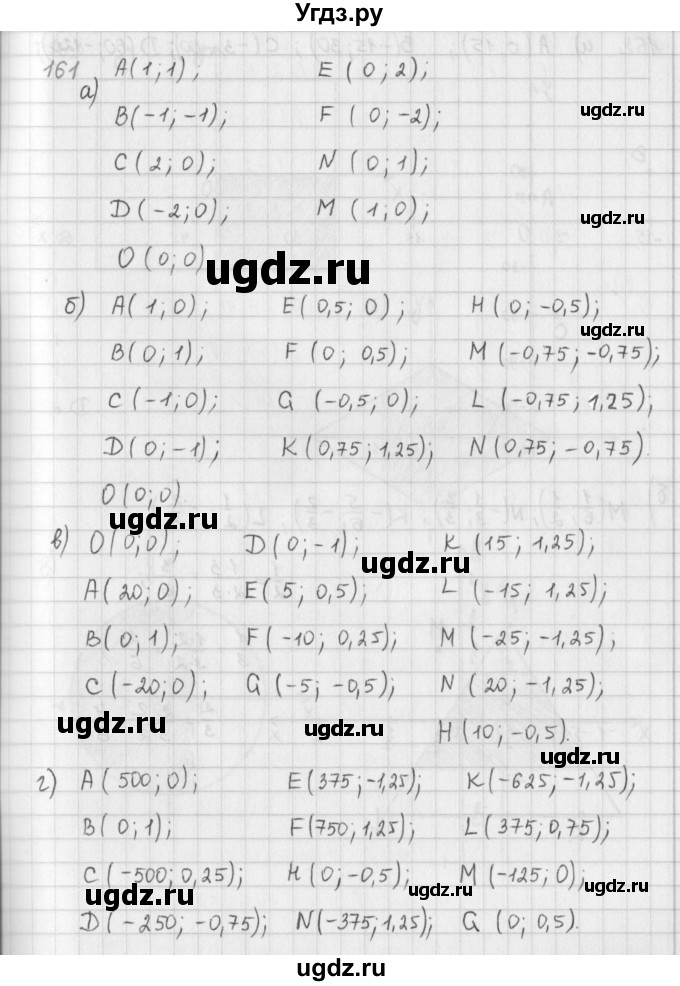 Угдз.ру
161 A(1;1); E(0;2);
а)
B(-1;-1); F(0;-2); ugdz.ru
C(2;0); N(0;1);
D(-2;0); M(1;0); ugdz.ru
O(0;0) ugdz.ru
б) A(1;0); E(0,5;0); H(0;-0,5);
ugdz.ru
B(0;1); F(0;0,5); M(-0,75;-0,75);
C(-1;0); G(-0,5;0); L(-0,75;1,25);
D(0;-1); K(0,75;1,25); N(0,75;-0,75).
O(0;0)
ugdz.ru ugdz.ru
в) O(0;0); D(0;-1); K(15;1,25);
ugdz.ru
A(20;0); E(5;0,5); L(-15;1,25);
B(0;1); F(-10;0,25); M(-25;-1,25),
C(-20;0); G(-5;-0,5); N(20;-1,25);
ugdz.ru ugdz.ru H(10;-0,5).
ugdz.ru
г) A(500;0); E(375;-1,25); K(-625;-1,25);
B(0;1); F(750;1,25); L(375;0,75);
C(-500;0,25); H(0;-0,5); M(-125;0);
ugdz.ru ugdz.ru ugdz.ru
D(-250;-0,75); N(-375;1,25); G(0;0,5).
ugdz.ru